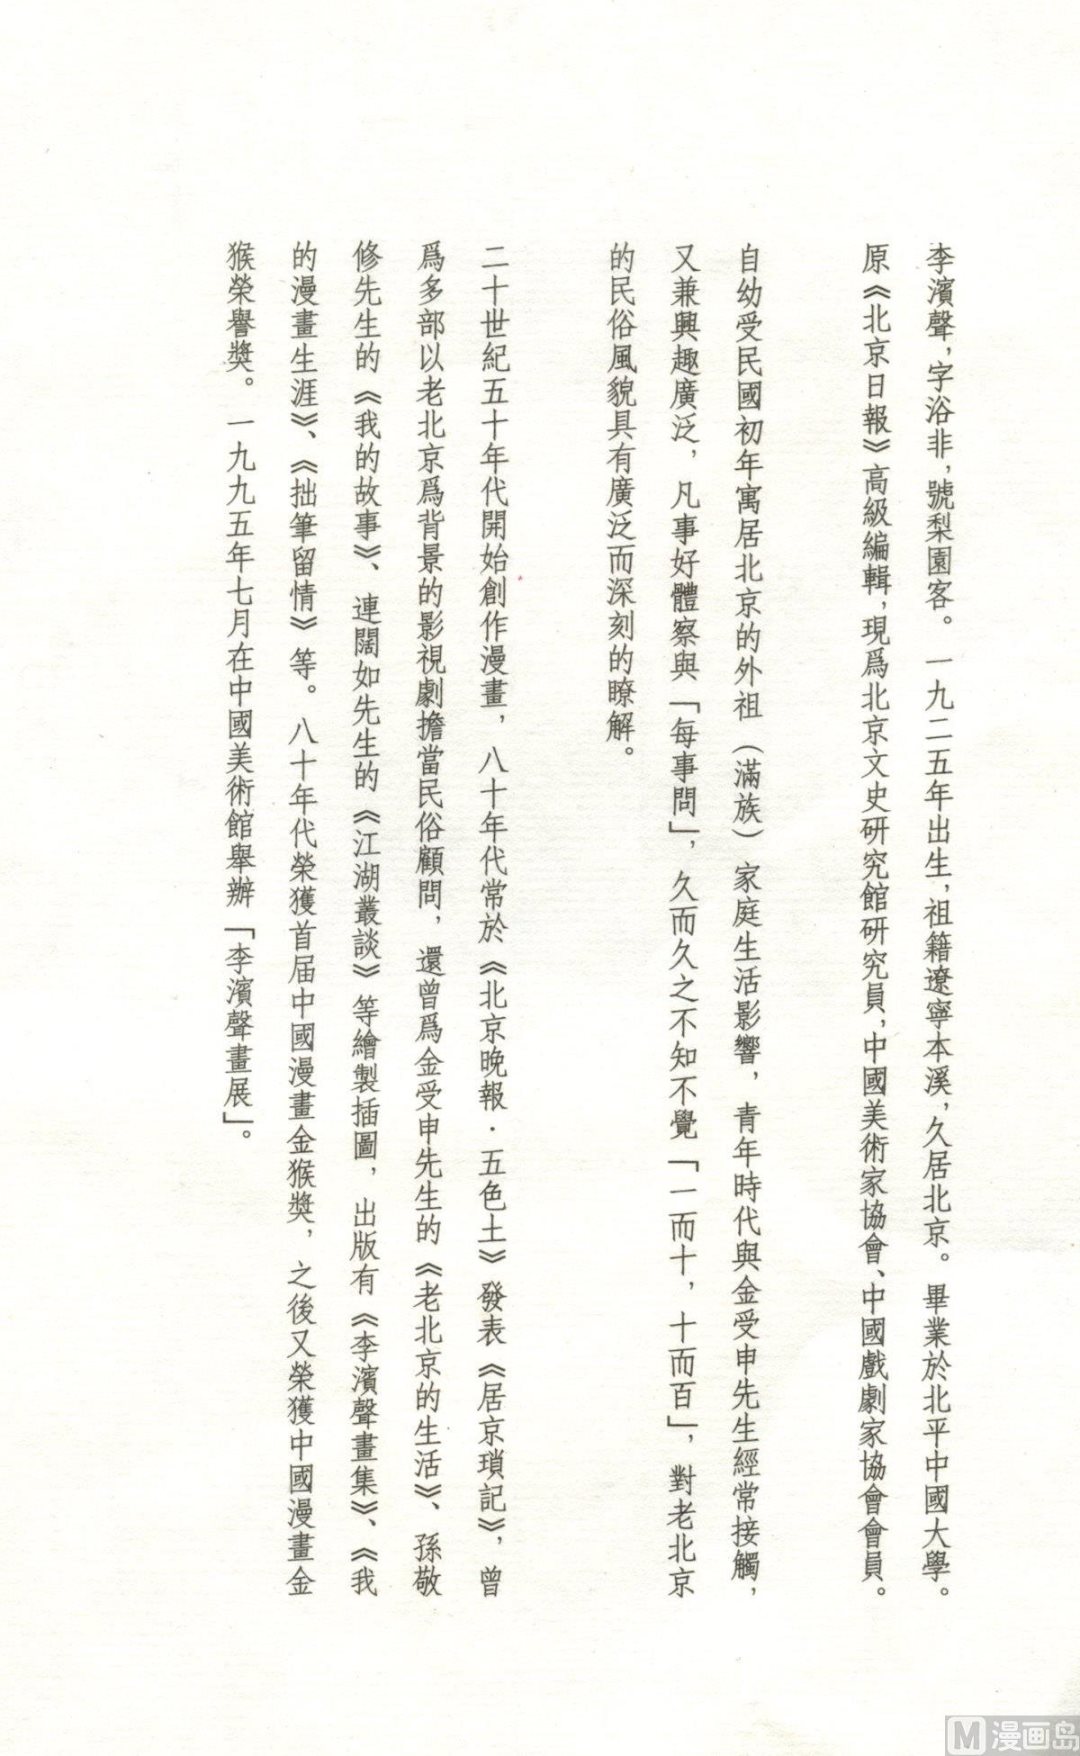 李濱聲，字浴非，號梨園客。一九二五年出生，祖籍遼寧本溪，久居北京。畢業於北平中國大學。
原《北京日報》高級編輯，現爲北京文史研究館研究員，中國美術家協會、中國戲劇家協會會員。
自幼受民國初年寓居北京的外祖（滿族）家庭生活影響，青年時代與金受申先生經常接觸，
又兼興趣廣泛，凡事好體察與「每事問」，久而久之不知不覺「一而十，十而百」，對老北京
的民俗風貌具有廣泛而深刻的瞭解。
二十世紀五十年代開始創作漫畫，八十年代常於《北京晚報·五色土》發表《居京瑣記》，曾
爲多部以老北京爲背景的影視劇擔當民俗顧問，還曾爲金受申先生的《老北京的生活》、孫敬
修先生的《我的故事》、連闊如先生的《江湖叢談》等繪製插圖，出版有《李濱聲畫集》、《我
的漫畫生涯》、《拙筆留情》等。八十年代榮獲首届中國漫畫金猴獎，之後又榮獲中國漫畫金
猴榮譽獎。一九九五年七月在中國美術館舉辦「李濱聲畫展」。
M漫画岛